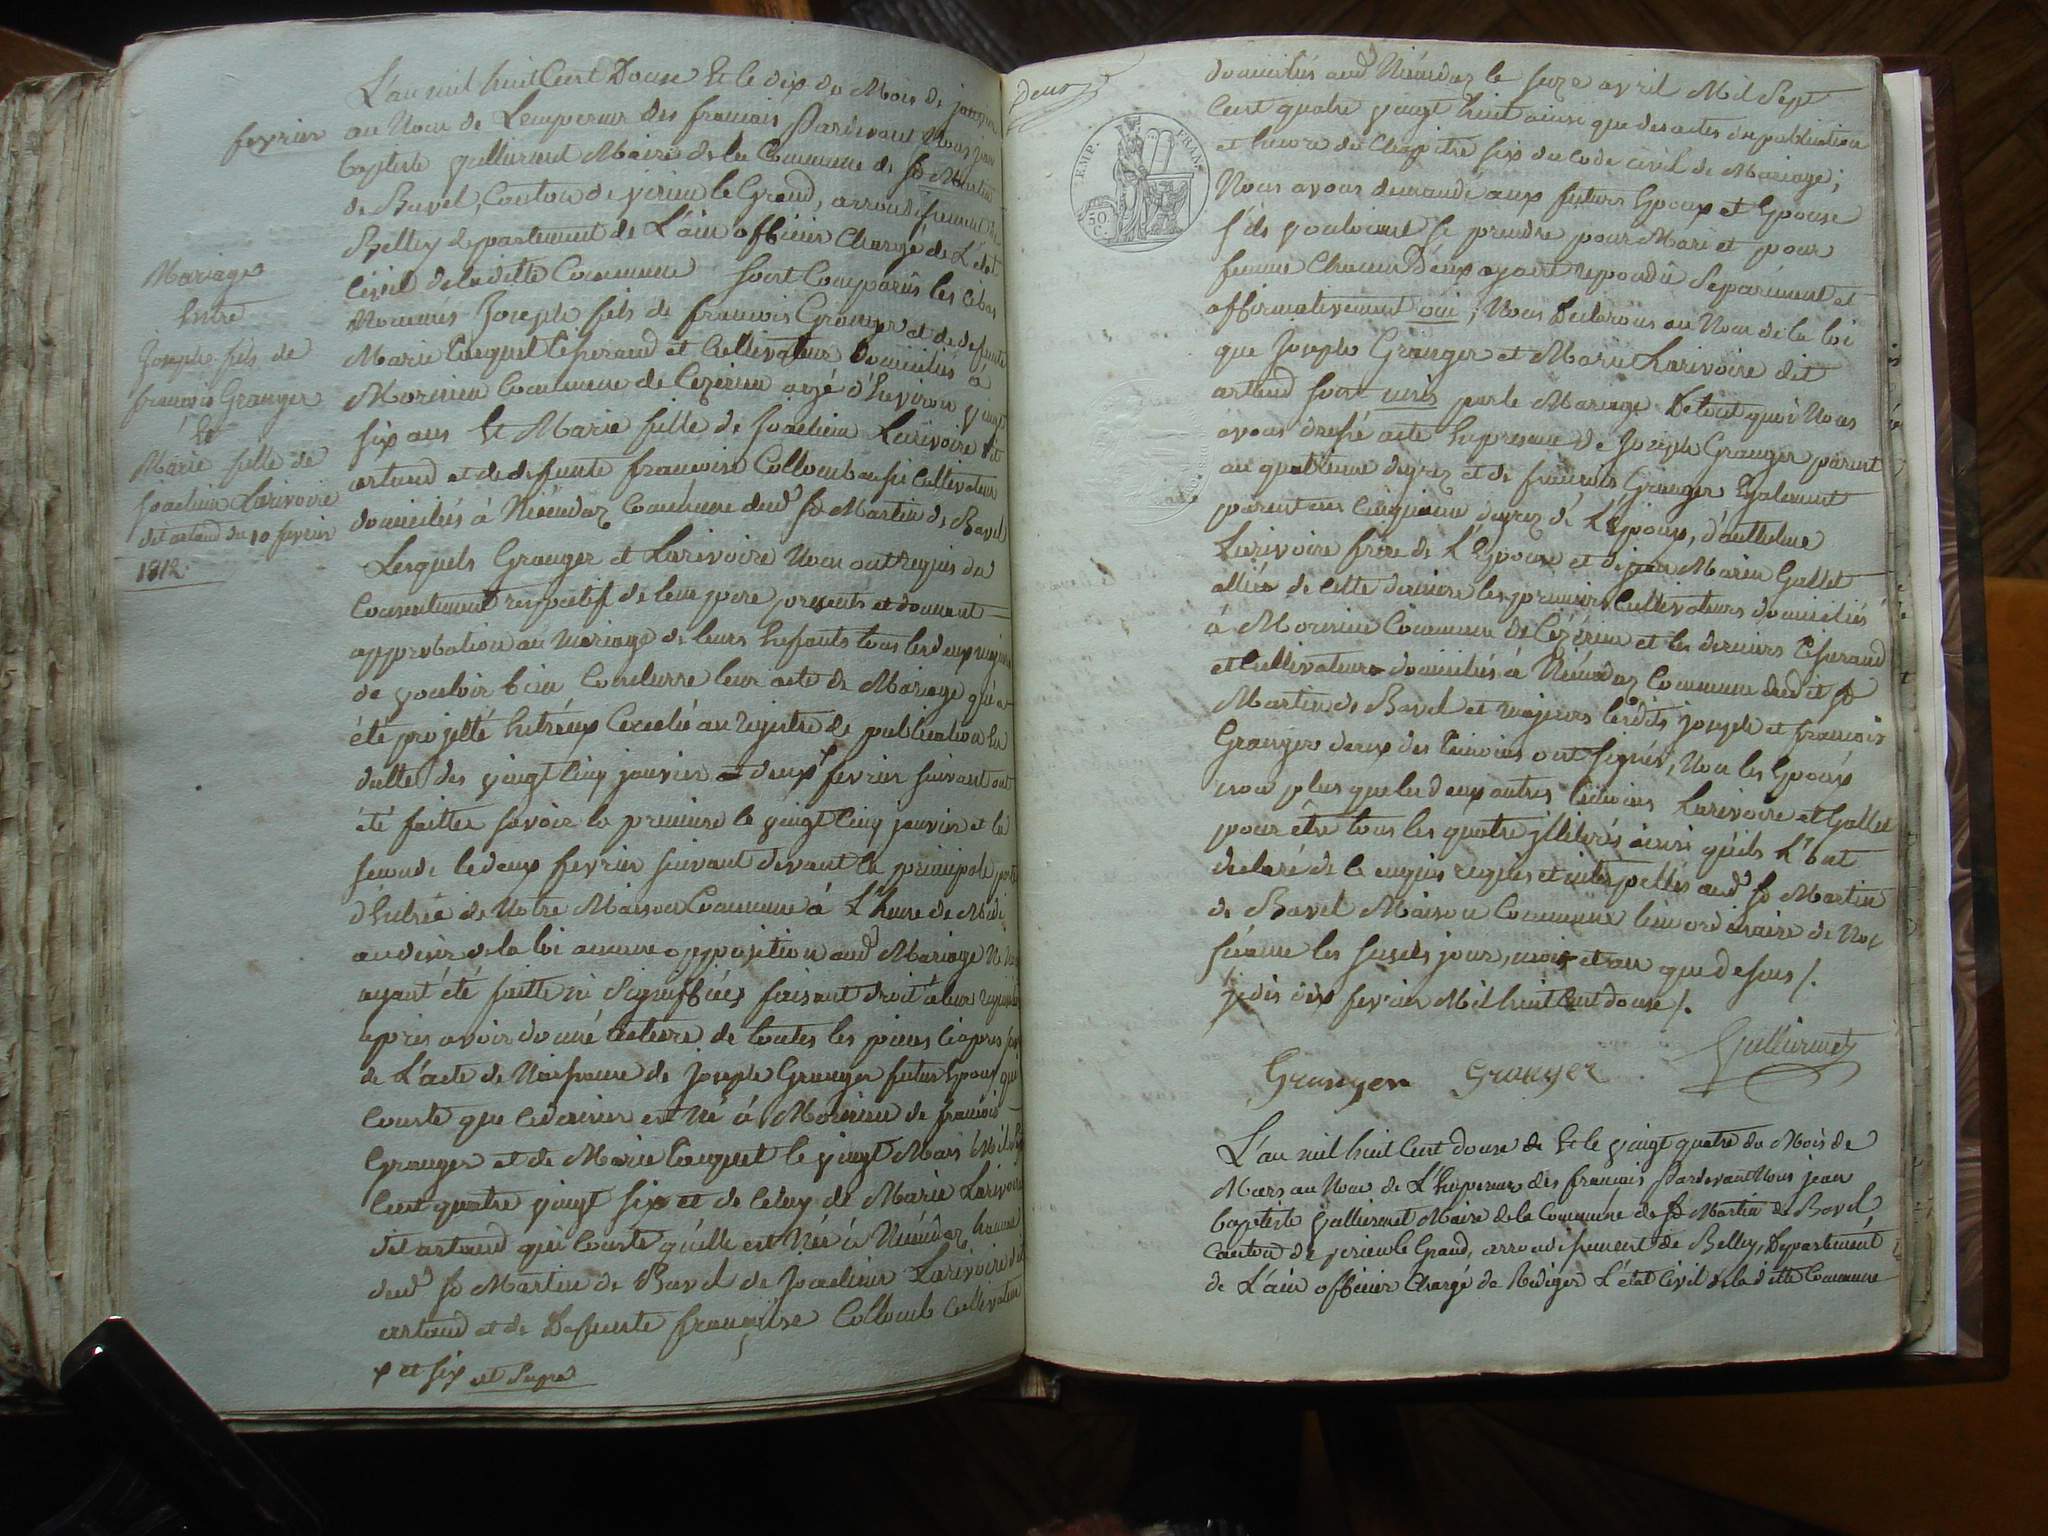 fevrier
Mariage
Entre
Joseph fils de
francois Granger
Et
Marie fille de
joachim Larivoire
dit artaud du 10 fevrier
1812.
L'an mil huit Cent Douse Et le dix du Mois de janvier
au Nom de Lempereur des francais Pardevant Nous jean
baptiste gullermet Maire de la Commune de St Martin
de Bavel, Canton de virieu le Grand, arrondissement de
Belley departement de L'ain officier Chargé de L'état
Civil de la ditte Commune sont Comparûs les
Nommés Joseph fils de francois Granger et de defunte
Marie Couquet et Cultivateur Domiciliés à
Mornieu Commune de Cezerieu agé d'Environ vingt
six ans Et Marie fille de Joachim Larivoire dit
artaud et de defunte francoise Collomb aussi Cultivateur
domiciliés à Niéudaz Commune dud St Martin de Bavel
Lesquels Granger et Larivoire Nous ont requis du
Consentement respectif de leur pere presents et donnant
approbation au mariage de leurs Enfants tous les deux majeurs
de vouloir bien Conclurre leur acte de Mariage qui a
été projetté Entréux au registre de publication En
datte des vingt Cinq janvier deux fevrier suivant ont
été faittes savoir la premiere le vingt Cinq janvier et la
seconde le deux fevrier suivant devant la principale porte
d'Entrée de Notre Maison Commune à L'heure de Midi
au desir de la loi aucune opposition aud Mariage Ne Nous
ayant été faitte ni Signiffiée, faisant droit à leur requisition
apres avoir donné lecture de toutes les pieces ciapres
de L'acte de Naissance de joseph Granger futur Epoux qui
Conste que ce dernier est Né à Mornieu de francois
Granger et de Marie Couquet le vingt Mars Mil sept
Cent quatre vingt six et de Celuy de Marie Larivoire
dit artaud qui Conste quélle est Née à Niéudaz hameau
dud St Martin de Bavel de Joachim Larivoire dit
artaud et de Defunte francoise Collomb Cultivateur
et six et Supra
Deux
EMP. FRAN.
50 C.
domiciliés aud Niéudaz le seze avril Mil Sept
Cent quatre vingt huit ainsi que des actes de publication
et lecture du Chapitre six du Code civil de Mariage;
Nous avons demandé aux futurs Epoux et Epouse
s'ils vouloient se prendre pour Mari et pour
femme Chacun D'eux ayant repondû Separément et
affirmativement oui; Nous Declarons au Nom de la loi
que Joseph Granger et Marie Larivoire dit
artaud sont unis par le Mariage De tout quoi Nous
avons dressé acte En presence de Joseph Granger parent
au quatrieme degrez et de francois Granger Egalement
parent au Cinquieme degrez de L'Epoux, d'anthelme
Larivoire frere de L'Epouse et de jean Marin Gallet
allié de cette derniere les premiers Cultivateurs domiciliés
à Mornieu Commune de Cezérieu et les derniers
et Cultivateurs domiciliés à Niéudaz Commune dudit St
Martin de Bavel et majeurs lesdits joseph et francois
Granger deux des temoins ont signés, Non les Epoux
non plus que les deux autres temoins Larivoire et Gallet
pour être tous les quatre jllitérés ainsi quéils L'ont
declaré de ce enquis requis et interpellés aud St Martin
de Bavel Maison Commune lieu ordinaire de Nos
séance les susdits jour, mois et an que dessus /.
je dis dix fevrier Mil huit Cent douse /.
Granger Granger Gullermet
L'an mil huit Cent douse Et le vingt quatre du Mois de
Mars au Nom de L'Empereur des francais Pardevant Nous jean
baptiste gullermet Maire de la Commune de St Martin de Bavel
Canton de virieu le Grand, arrondissement de Belley, Departement
de L'ain officier Chargé de Rediger L'état Civil de la ditte Commune